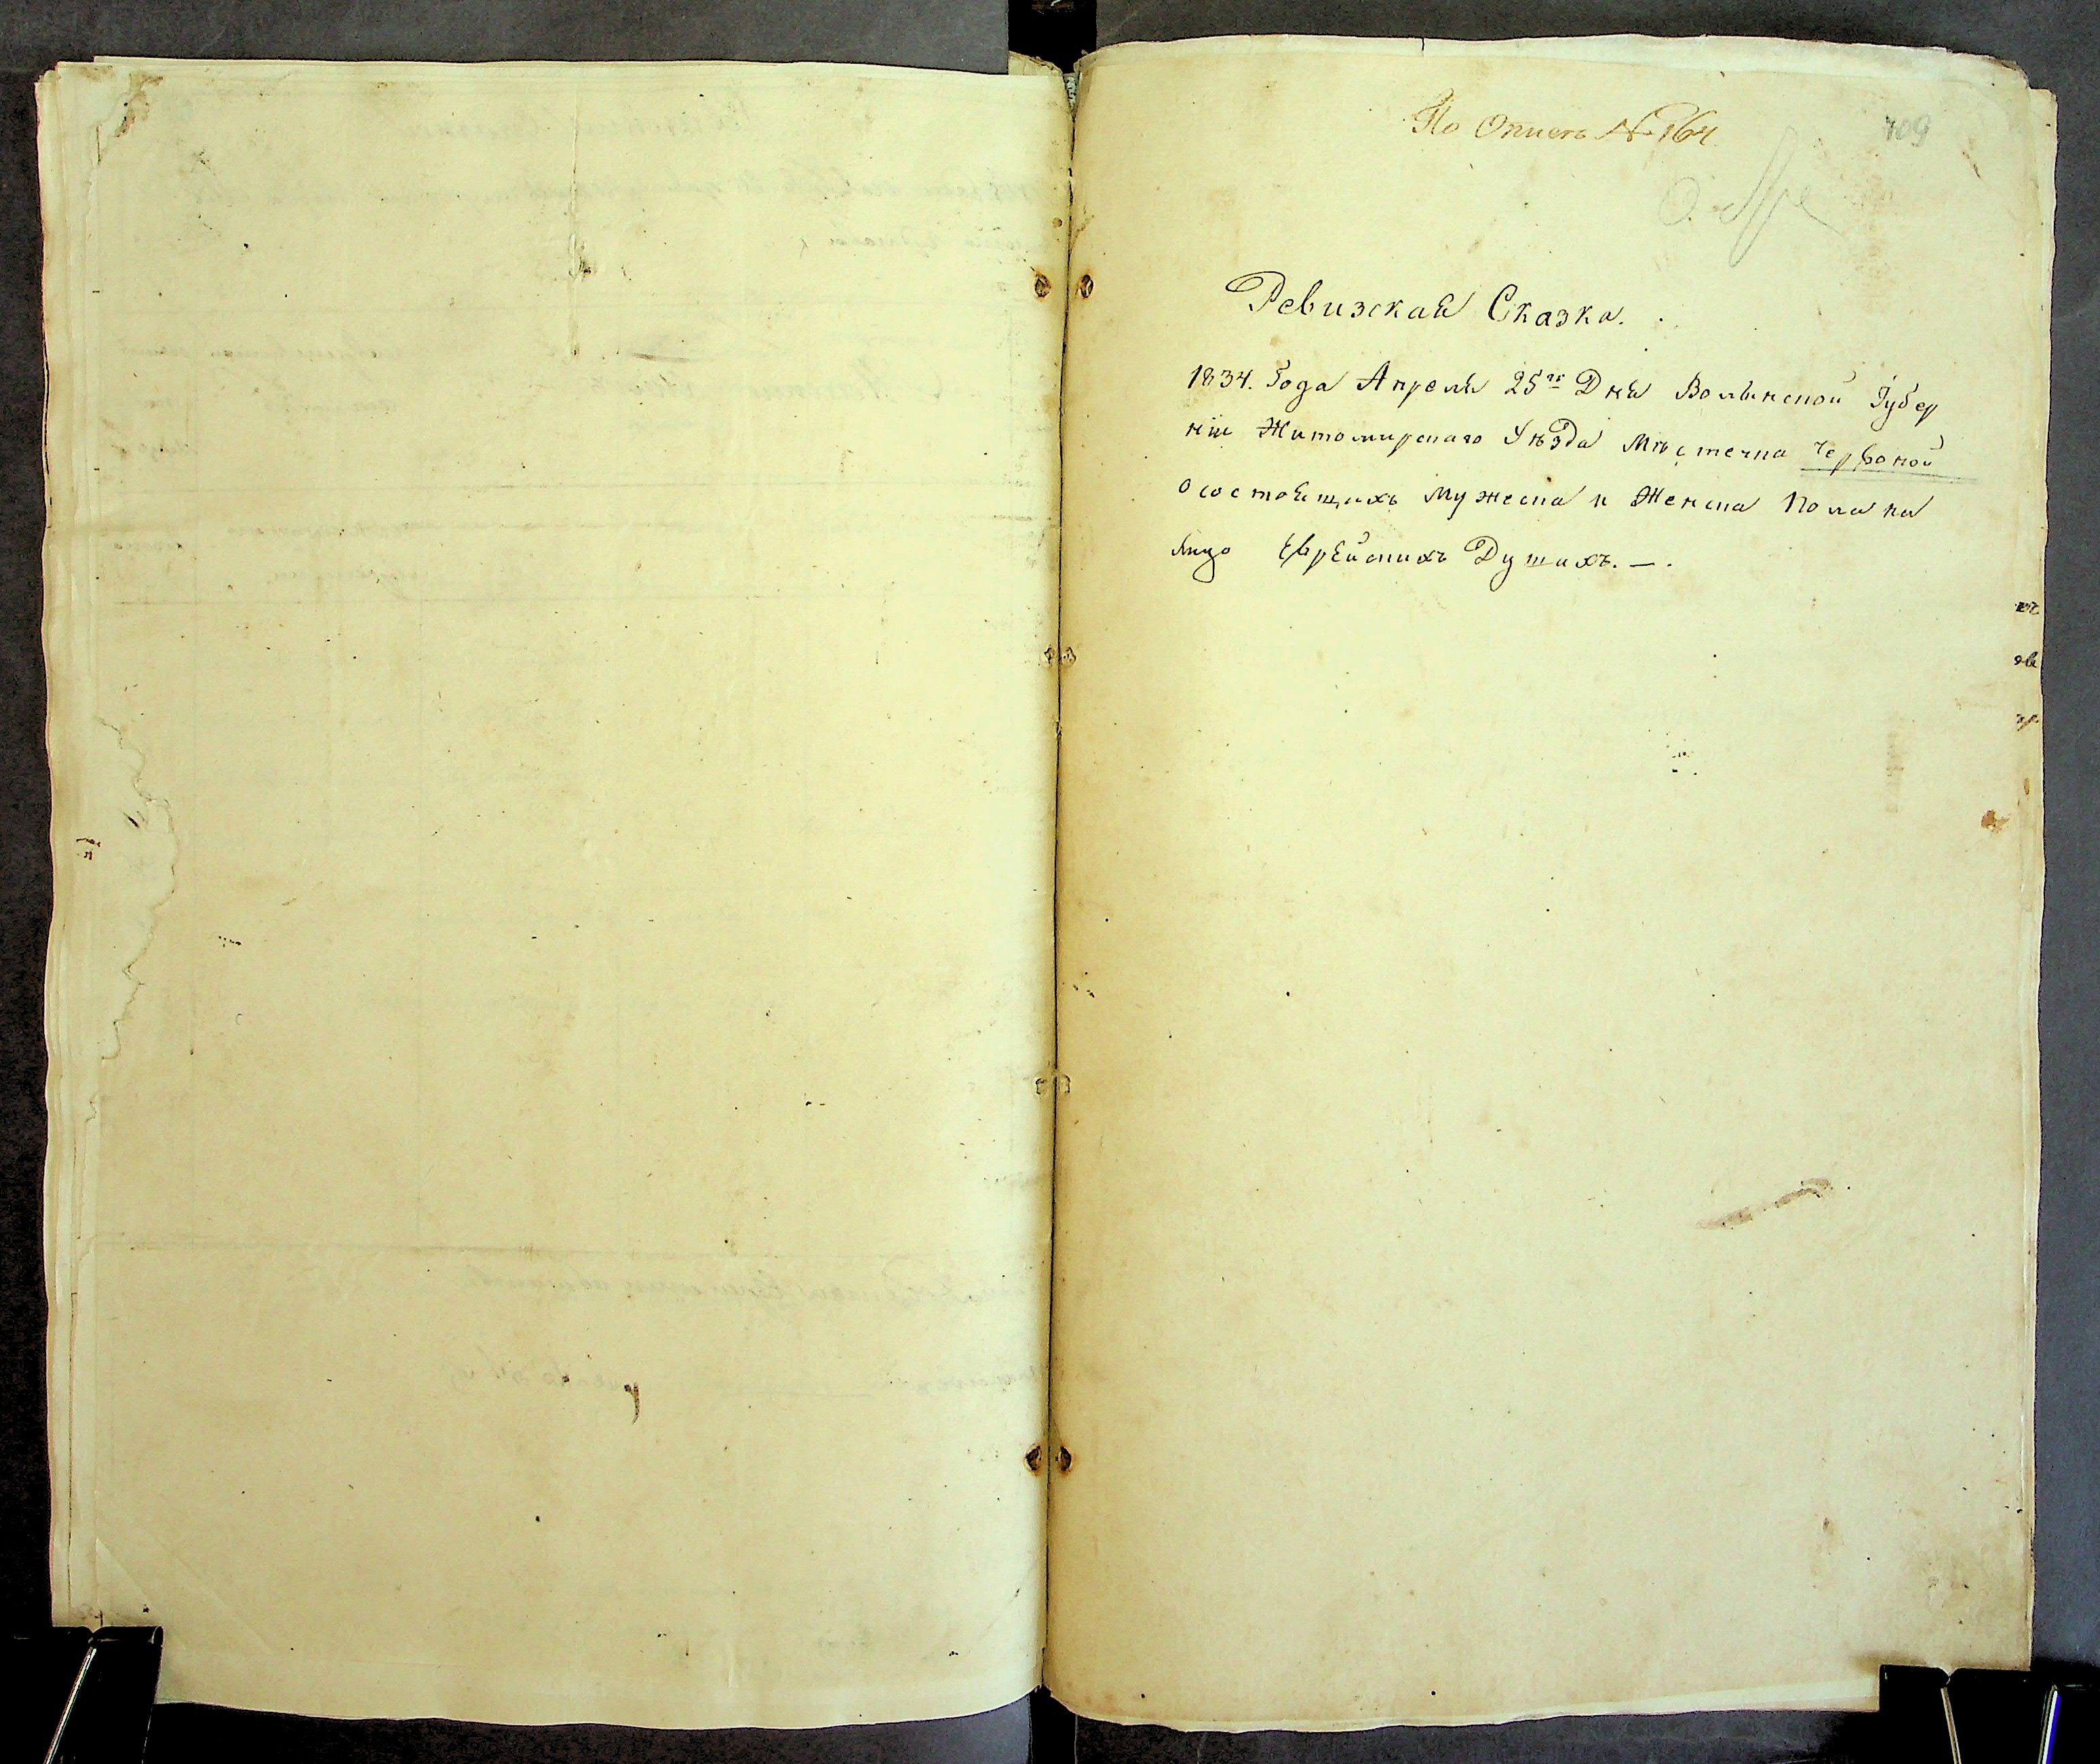 По Описѣ № 164.
409
Ревизская Сказка.
1834. Года Апреля 25го Дня Волынской Губер
ніи Житомирскаго Уѣзда Мѣстечка Червоной
о состоящихъ Мужеска и Женска Пола на
лицо Еврейскихъ Душахъ. —.